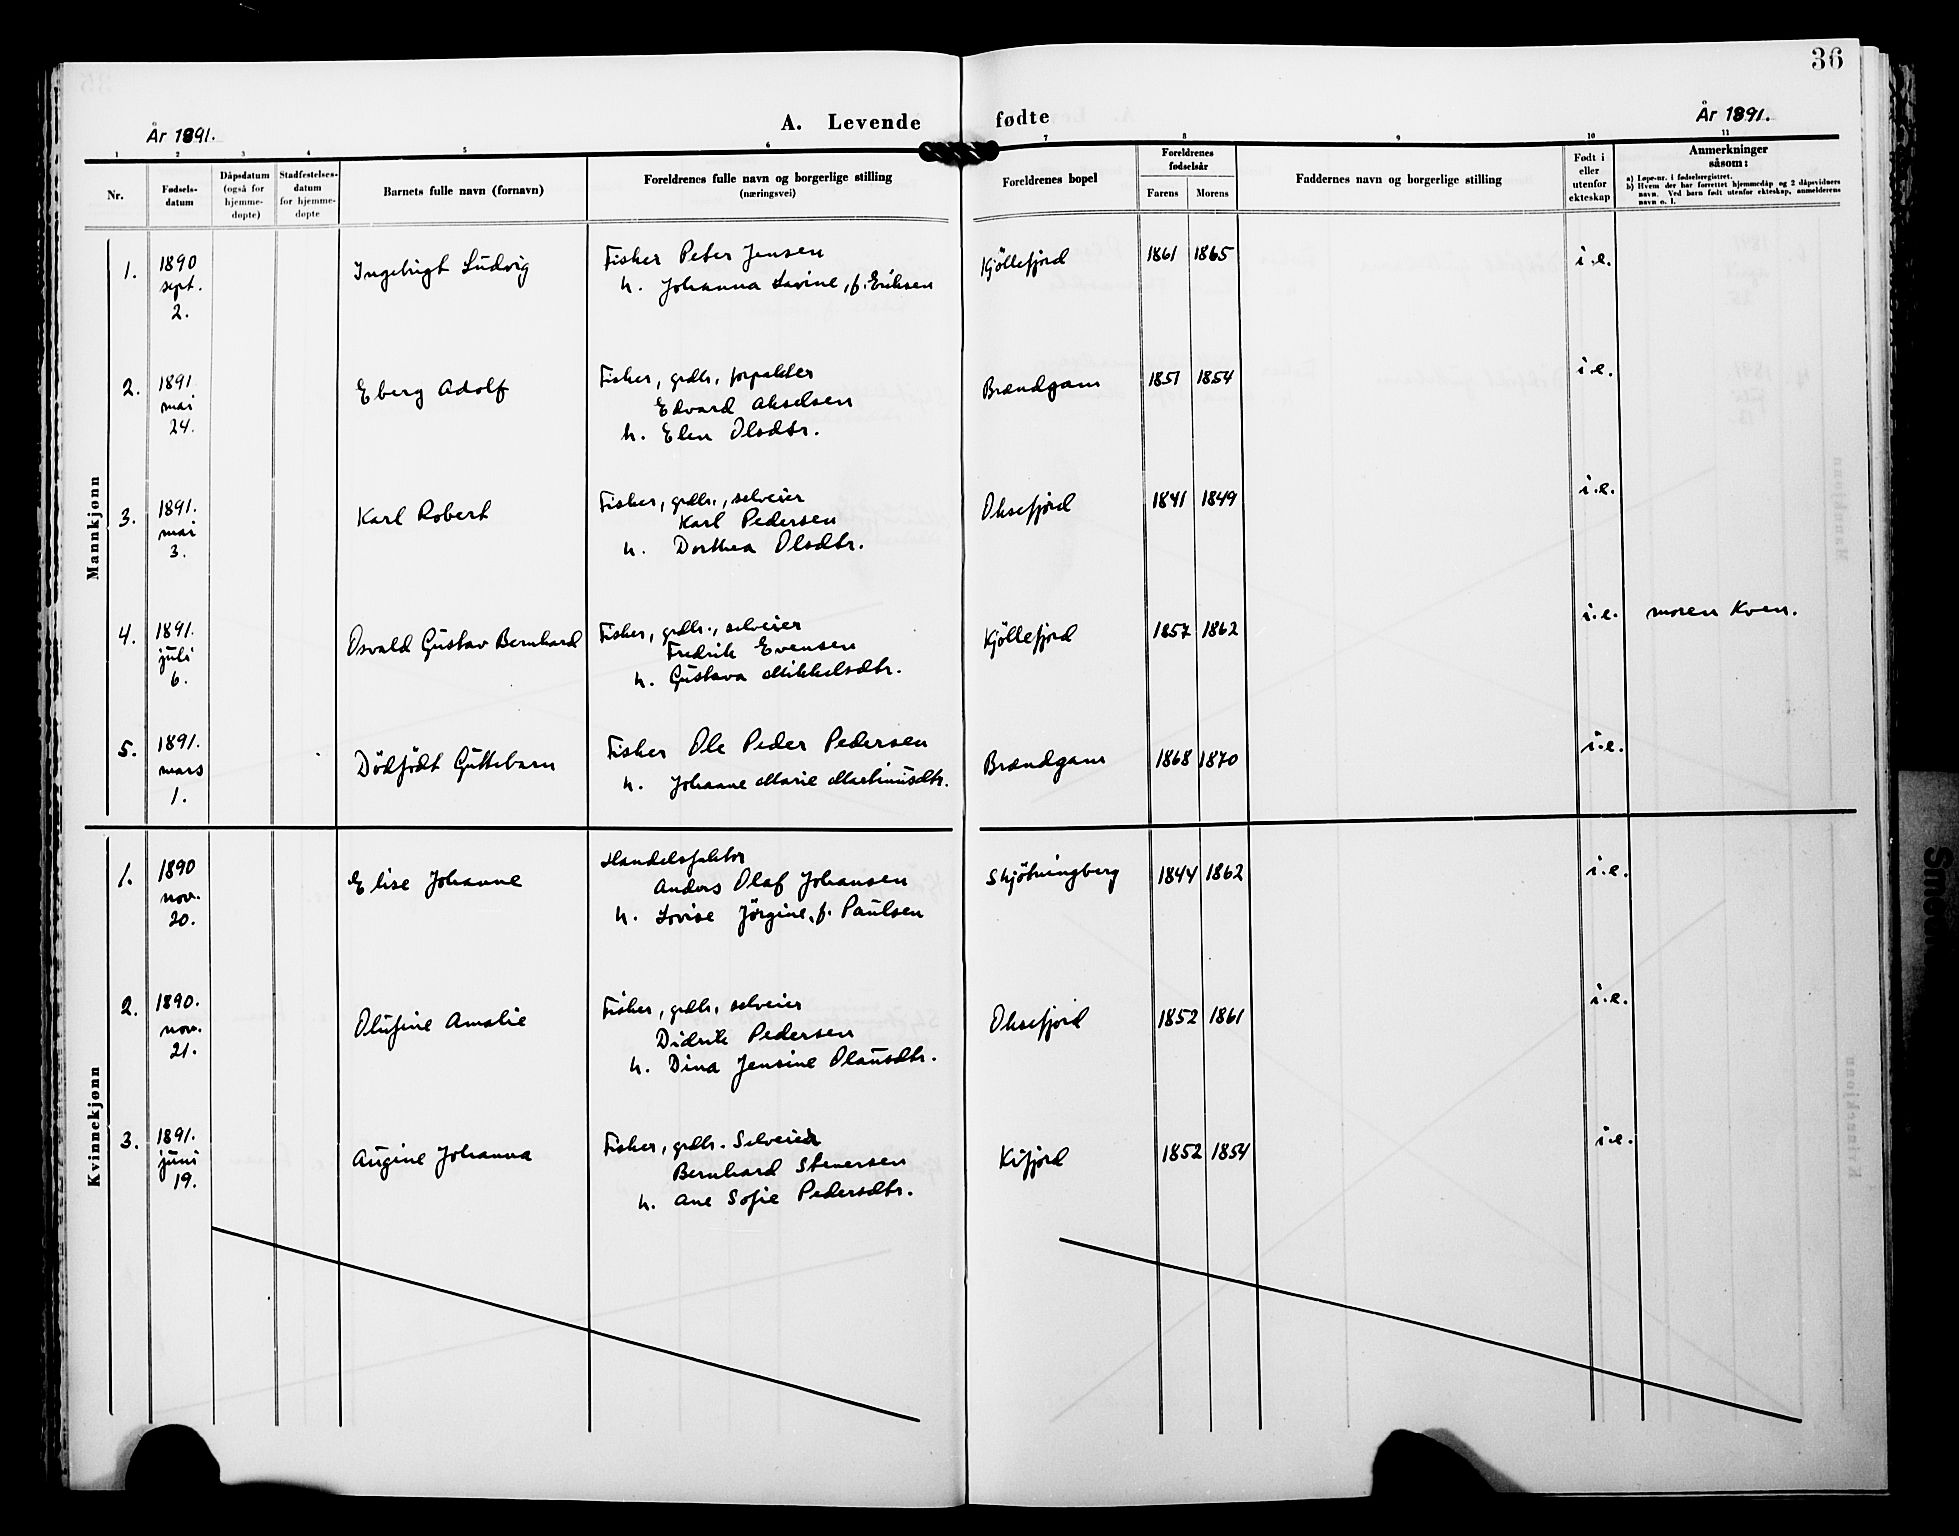 36
År 1891.
A. Levende fødte
År 1891.
1 2 3 4 5 6 7 8 9 10 11
Nr.
Fødsels-
datum
Dåpsdatum
(også for
hjemme-
døpte)
Stadfestelses-
datum
for hjemme-
døpte
Barnets fulle navn (fornavn)
Foreldrenes fulle navn og borgerlige stilling
(næringsvei)
Foreldrenes bopel
Foreldrenes
fødselsår
Farens Morens
Faddernes navn og borgerlige stilling
Født i
eller
utenfor
ekteskap
Anmerkninger
såsom:
a) Løpe-nr. i fødselsregistret.
b) Hvem der har forrettet hjemmedåp og 2 dåpsvidners
navn. Ved barn født utenfor ekteskap, anmelderens
navn o. l.
Mannkjønn
1.
1890
sept.
2.
Ingebrigt Ludvig
Fisker Peter Jensen
h. Johanna Lovine, f. Eriksen
Kjöllefjord
1861 1865
i.e.
2.
1891
mai
24.
Eberg Adolf
Fisker, grdbr, forpakter
Edvard Akselsen
h. Elen Olsdtr.
Brændgam
1851 1854
i.e.
3.
1891.
mai
3.
Karl Robert
Fisker, grdbr., selveier
Karl Pedersen
h. Dorthea Olsdtr.
Oksefjord
1841 1849
i.e.
4.
1891.
juli
6.
Osvald Gustav Bernhard
Fisker, grdbr., selveier
Fredrik Evensen
h. Gustava Mikkelsdtr.
Kjöllefjord
1857 1862
i.e.
moren Kven.
5.
1891.
mars
1.
Dödfödt Guttebarn
Fisker Ole Peder Pedersen
h. Johanne Marie Martinusdtr.
Brændgam
1868 1870
i.e.
Kvinnekjønn
1.
1890
nov.
20.
Elise Johanne
Handelsfaktor
Anders Olaf Johansen
h. Lovise Jörgine, f. Paulsen
Skjötningberg
1844 1862
i.e.
2.
1890.
nov.
21.
Olufine Amalie
Fisker, grdbr, selveier
Didrik Pedersen
h. Dina Jensine Olausdtr.
Oksefjord
1852 1861
i.e.
3.
1891.
juni
19.
Augine Johanna
Fisker, grdbr. Selveier
Bernhard Stenersen
h. Ane Sofie Pedersdtr.
Kifjord
1852 1854
i.e.